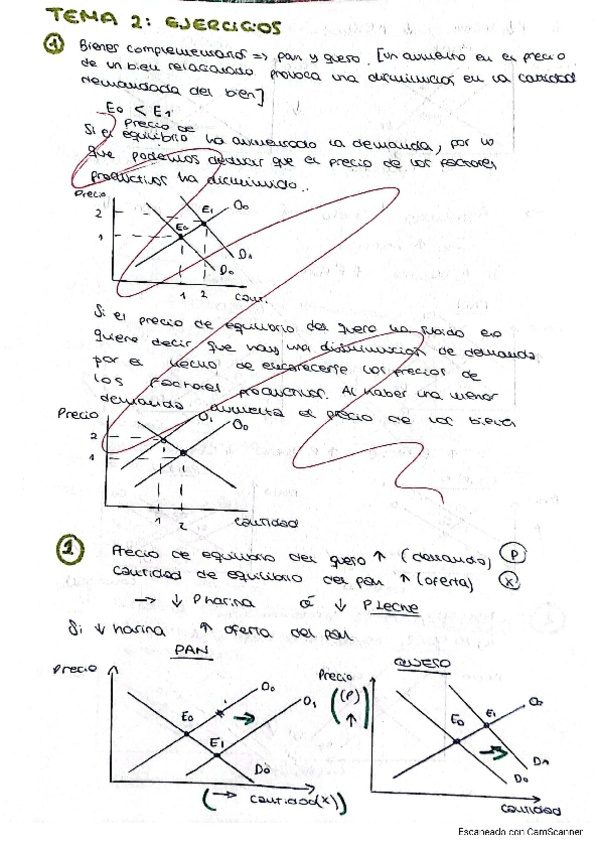 TEMA 2: EJERCICIOS
1 Bienes complementarios => pan y queso. [un aumento en el precio
de un bien relacionado provoca una disminución en la cantidad
demandada del bien]
E0 < E1
precio de
Si el equilibrio ha aumentado la demanda, por lo
que podemos deducir que el precio de los factores
productivos ha disminuido.
Precio
2
1
E0
E1
O0
D1
D0
1 2 Cant.
Si el precio de equilibrio del queso ha subido eso
quiere decir que hay una disminución de demanda
por el hecho de encarecerse los precios de
los factores productivos. Al haber una menor
demanda aumenta el precio de los bienes
Precio
O1
O0
2
1
1 2
cantidad
1 Precio de equilibrio del queso ↑ (demanda) P
Cantidad de equilibrio del pan ↑ (oferta) X
→ ↓ P harina ó ↓ P leche
Si ↓ harina ↑ oferta del pan
PAN
QUESO
Precio
O0
O1
E0
E1
D0
(→ cantidad(x))
Precio
(P)
↑
E0
E1
D1
D0
cantidad
Escaneado con CamScanner